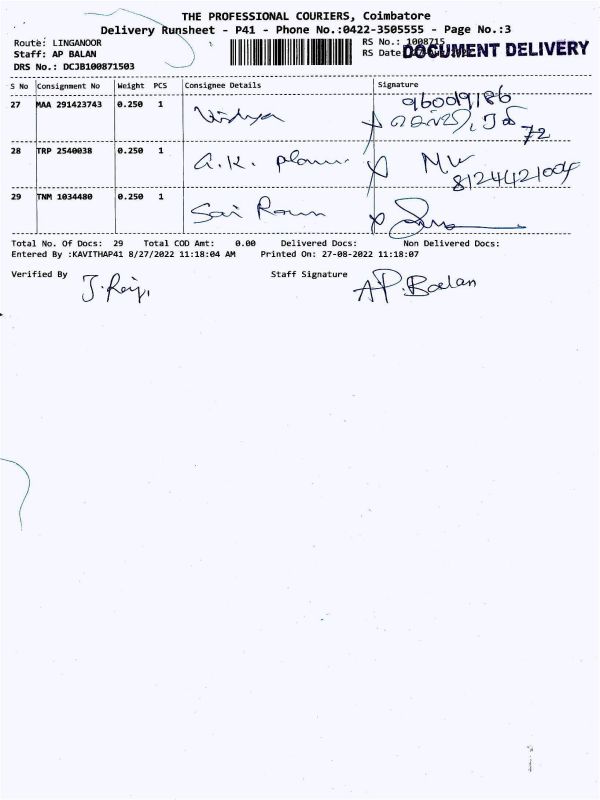 THE PROFESSIONAL COURIERS, Coimbatore
Delivery Runsheet - P41 - Phone No.:0422-3505555 - Page No.:3
Route: LINGANOOR RS No.: 1008715
Staff: AP BALAN RS Date DOCUMENT DELIVERY
DRS No.: DCJB100871503
S No Consignment No Weight PCS Consignee Details Signature
27 MAA 291423743 0.250 1 Vidhya
72
28 TRP 2540038 0.250 1 a.k.
8124421004
29 TNM 1034480 0.250 1 Sai Ram
Total No. Of Docs: 29 Total COD Amt: 0.00 Delivered Docs: Non Delivered Docs:
Entered By :KAVITHAP41 8/27/2022 11:18:04 AM Printed On: 27-08-2022 11:18:07
Verified By Staff Signature AP.Baalan